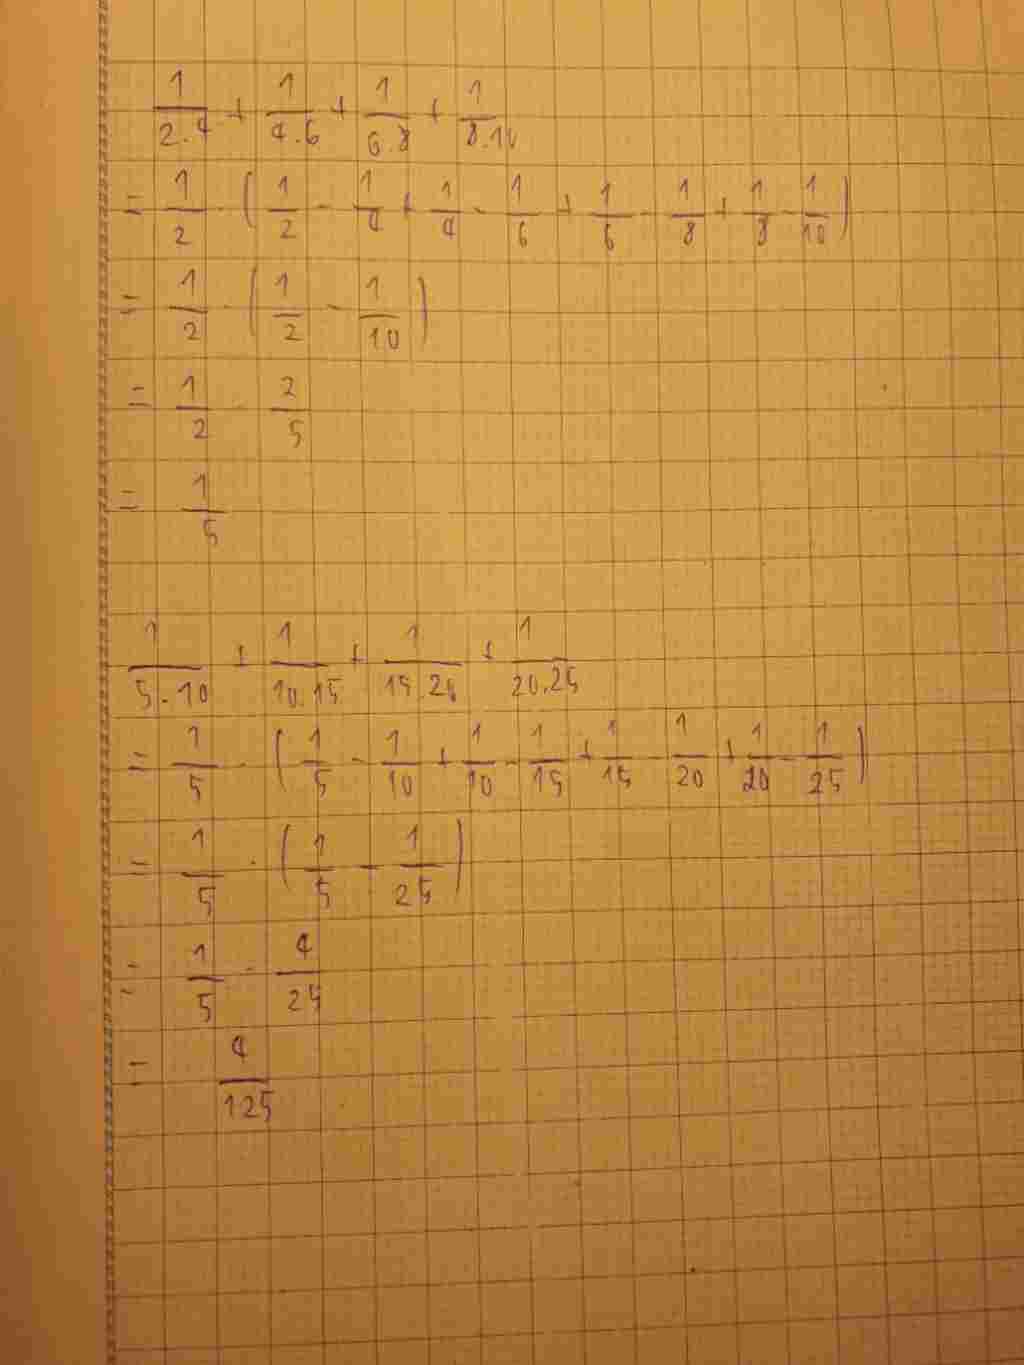 1/(2.4) + 1/(4.6) + 1/(6.8) + 1/(8.10)
= 1/2 . (1/2 - 1/4 + 1/4 - 1/6 + 1/6 - 1/8 + 1/8 - 1/10)
= 1/2 . (1/2 - 1/10)
= 1/2 . 2/5
= 1/5
1/(5.10) + 1/(10.15) + 1/(15.20) + 1/(20.25)
= 1/5 . (1/5 - 1/10 + 1/10 - 1/15 + 1/15 - 1/20 + 1/20 - 1/25)
= 1/5 . (1/5 - 1/25)
= 1/5 . 4/25
= 4/125